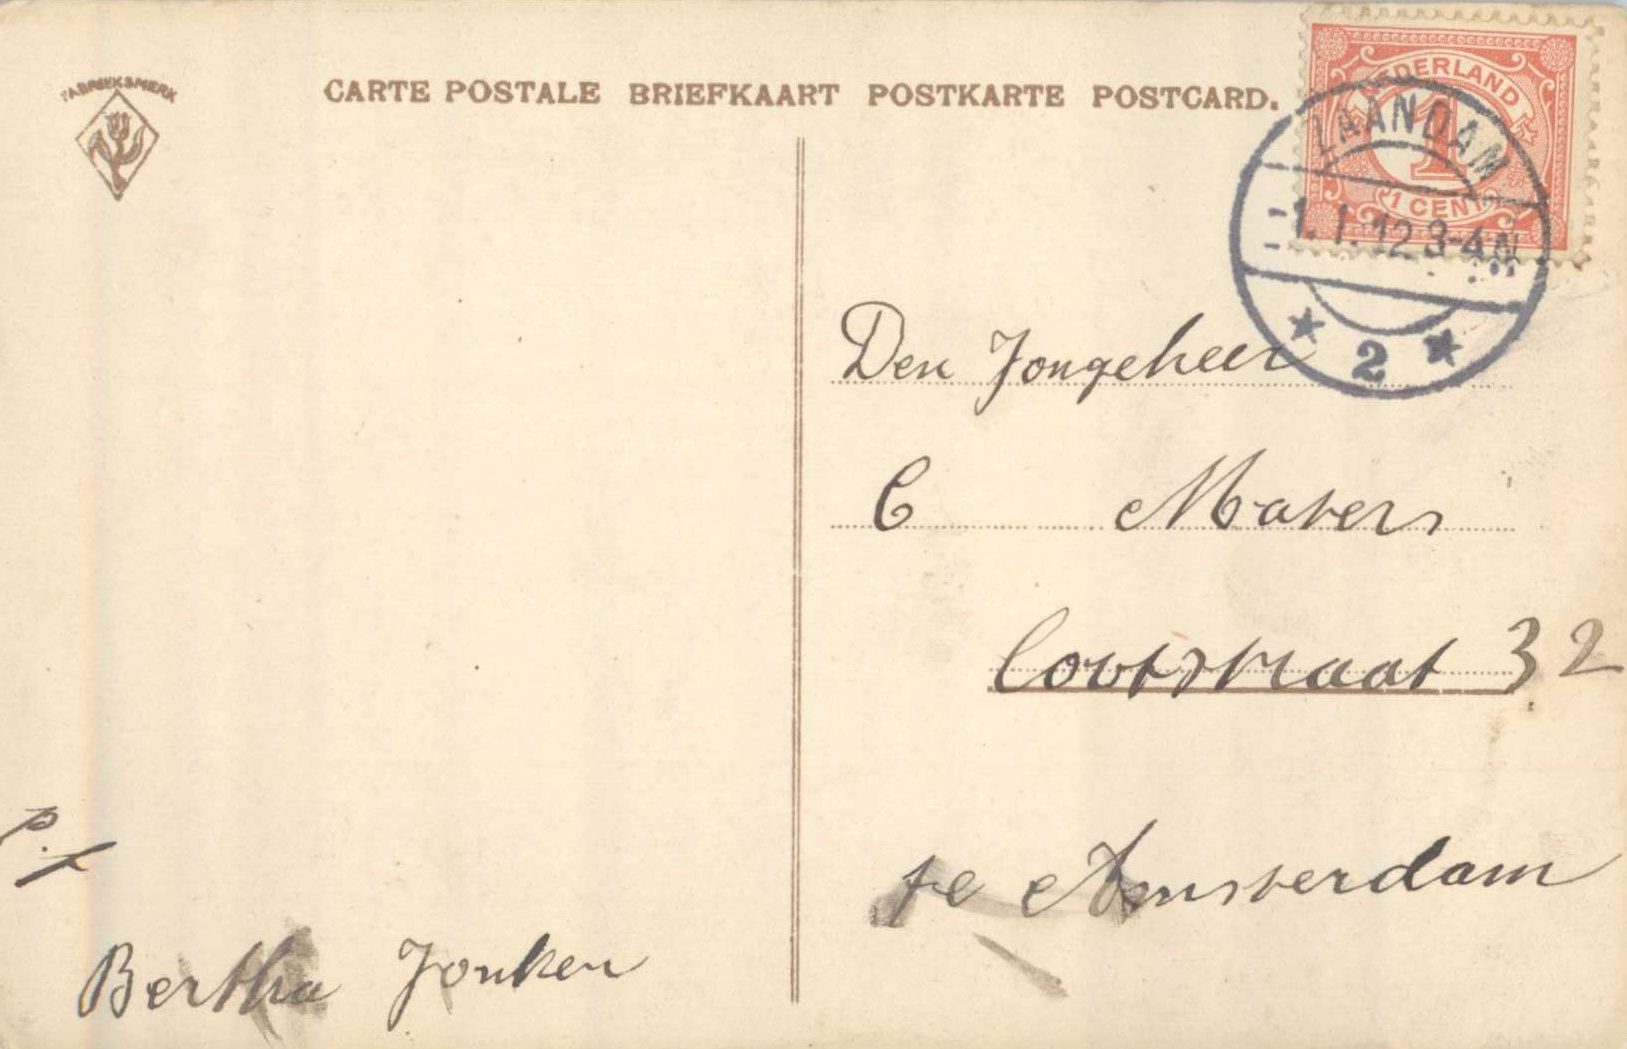 FABRIEKSMERK
CARTE POSTALE BRIEFKAART POSTKARTE POSTCARD.
NEDERLAND
1
1 CENT
ZAANDAM
-1.1.12 3-4N
2
Den Jongeheer
C Maters
Cootstraat 32
te Amsterdam
p.f
Bertha Jonker